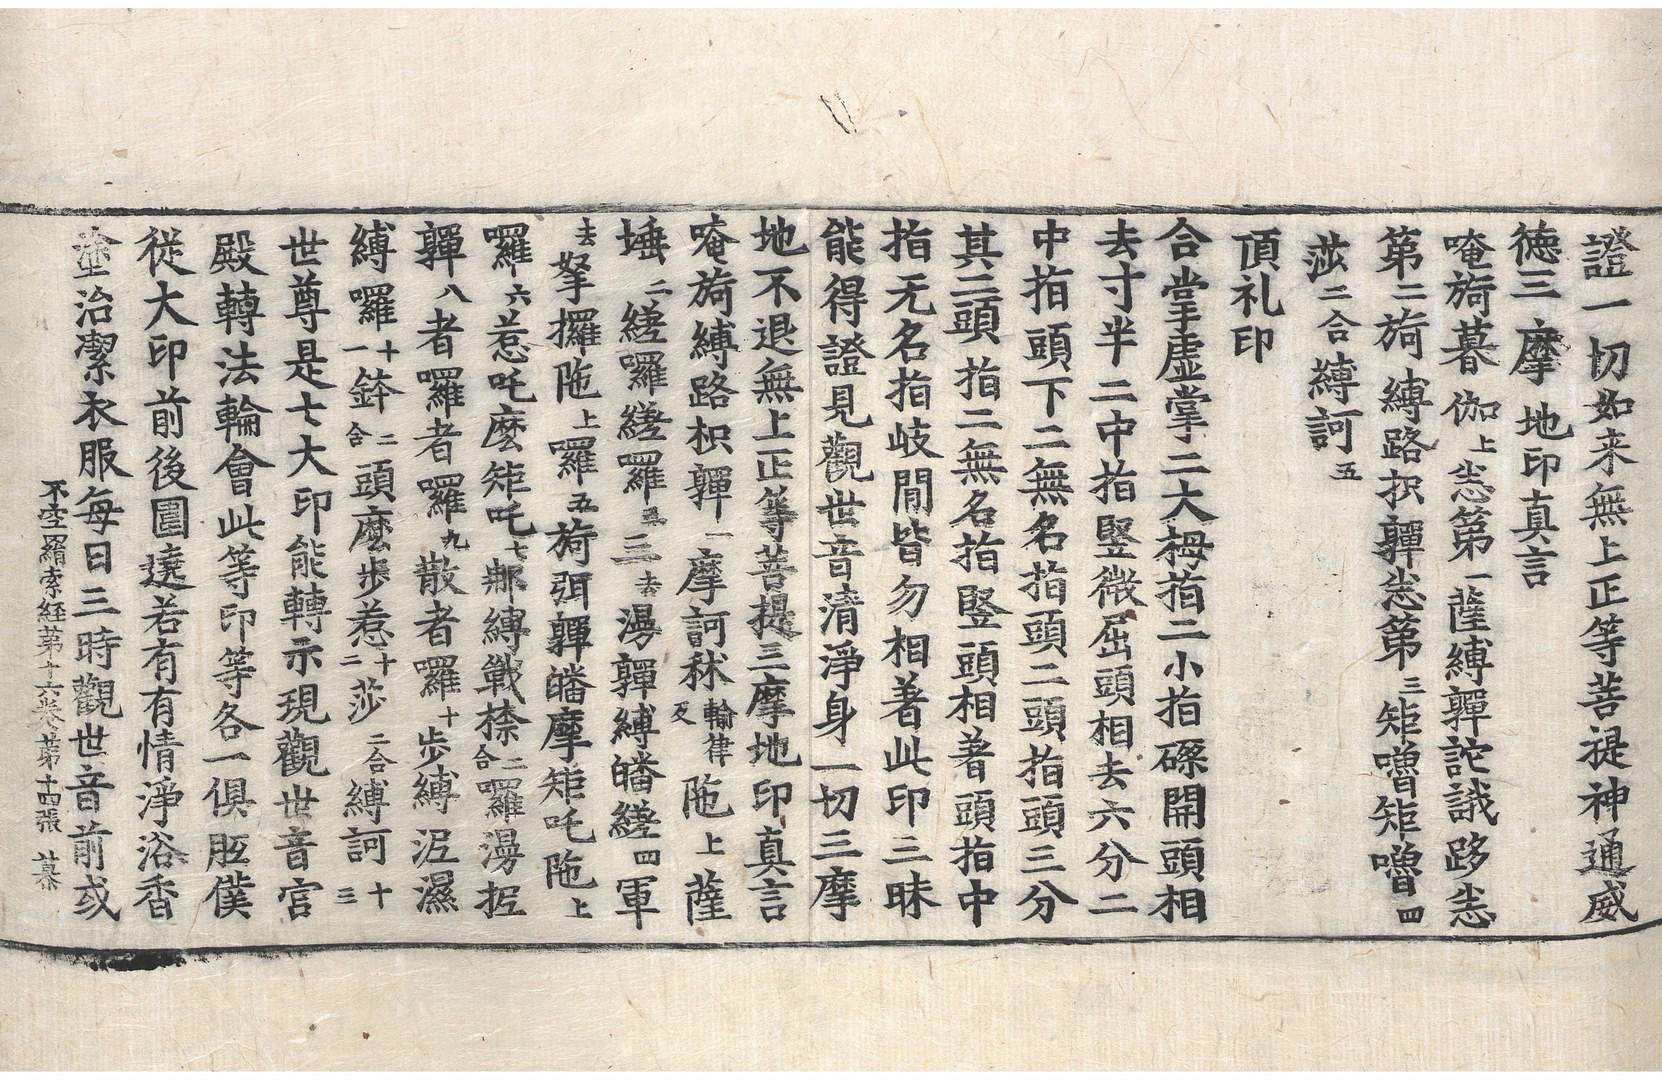 證一切如来無上正等菩提神通威
德三摩地印真言
唵旖暮伽上㳒第一薩縛嚲詑誐跢㳒
第二旖縛路枳嚲㳒第三矩嚕矩嚕四
莎二合縛訶五
頂礼印
合掌虚掌二大拇指二小指磔開頭相
去寸半二中指竪微屈頭相去六分二
中指頭下二無名指頭二頭指頭三分
其二頭指二無名指竪頭相著頭指中
指无名指歧間皆勿相著此印三昧
能得證見觀世音清淨身一切三摩
地不退無上正等菩提三摩地印真言
唵旖縛路枳嚲一摩訶秫輪律反陁上薩
埵二縒囉縒囉三去湯嚲縛皤縒四軍
去拏攞陁上囉五旖弭嚲皤摩矩吒陁上
囉六惹吒麼矩吒七那縛戰捺二合囉湯拞
嚲八者囉者囉九散者囉十步縛泥濕
縛囉十一鉢二合頭麼步惹十二莎二合縛訶十三
世尊是七大印能轉示現觀世音宫
殿轉法輪會此等印等各一俱胝僕
從大印前後圍遶若有有情淨浴香
塗治潔衣服每日三時觀世音前或
不空羂索経苐十六卷苐十四張 暮